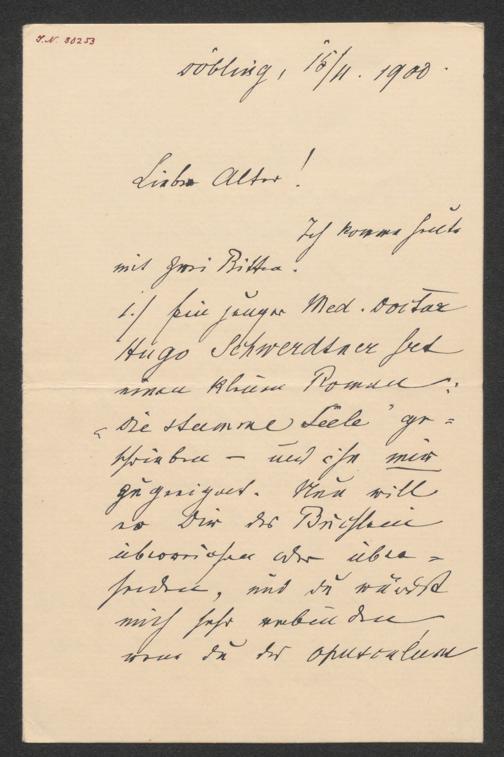 J.N. 80253
Döbling, 15/11. 1900.
Lieber Alter!
Ich komme heute
mit zwei Bitten.
1.) Ein junger Med. Doctor
Hugo Schwerdtner hat
einen kleinen Roman:
„Die stumme Seele" ge=
schrieben – und ihn mir
zugeeignet. Nun will
er Dir das Büchlein
überreichen oder über=
senden, und du würdest
mich sehr verbinden
wenn du das opusculum